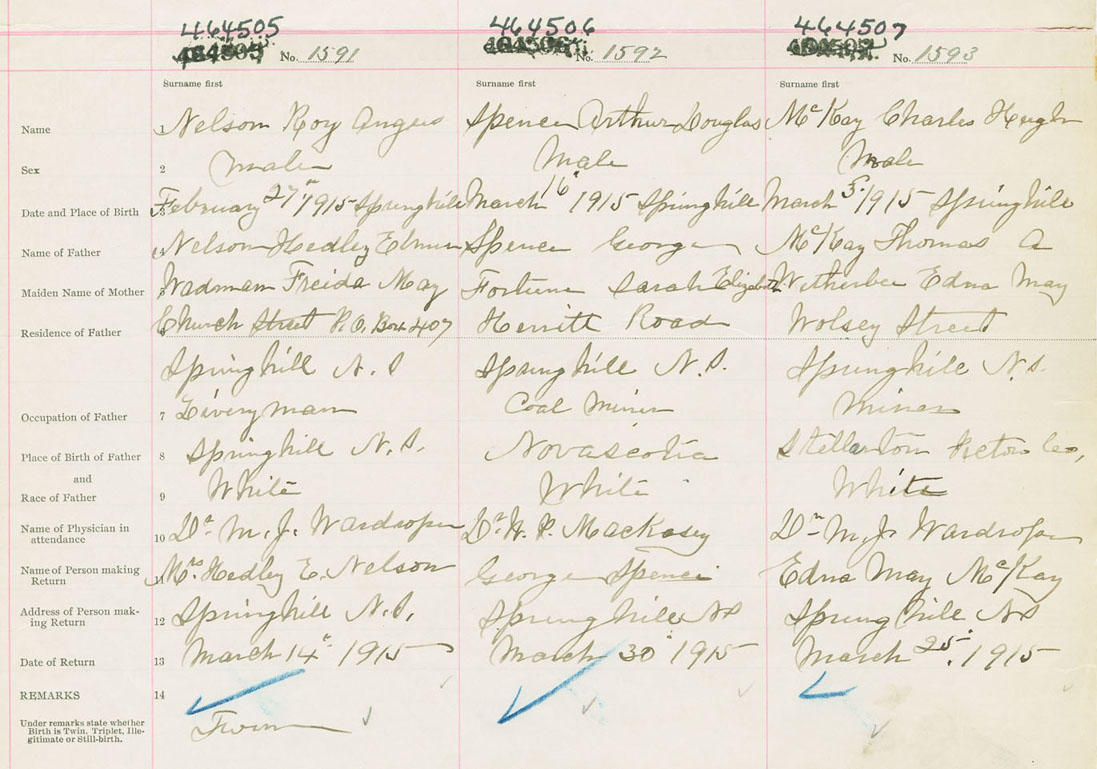 464505 464506 464507
No. 1591 No. 1592 No. 1593
Surname first Surname first Surname first
Name 1 Nelson Roy Angus Spence Arthur Douglas McKay Charles Hugh
Sex 2 male Male Male
Date and Place of Birth 3 February 27th 1915 Springhill March 16 1915 Springhill March 5. 1915 Springhill
Name of Father 4 Nelson Hedley Elmer Spence George McKay Thomas A
Maiden Name of Mother 5 Wadman Freida May Fortune Sarah Elizabeth Wetherbee Edna May
Residence of Father 6 Church Street P.O. Box 407 Herritt Road Wolsey Street
Springhill N.S Springhill N.S. Springhill N.S.
Occupation of Father 7 Liveryman Coal Miner Miner
Place of Birth of Father 8 Springhill N.S. Novascotia Stellarton Pictou Co,
and
Race of Father 9 White White White
Name of Physician in attendance 10 Dr M. J. Wardroper Dr H. P. MacKasey Dr M. J. Wardroper
Name of Person making Return 11 Mrs Hedley E. Nelson George Spence Edna May McKay
Address of Person mak- ing Return 12 Springhill N.S. Springhill NS Springhill NS
Date of Return 13 March 14th 1915 March 30 1915 March 25. 1915
REMARKS 14
Under remarks state whether Birth is Twin, Triplet, Ille- gitimate or Still-birth.
Twin